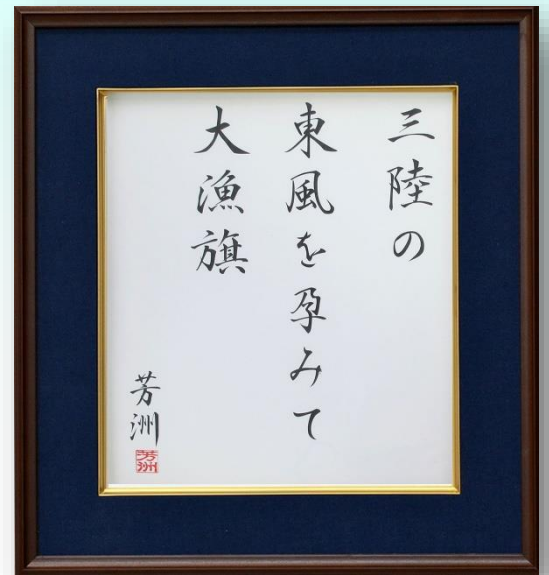 三陸の
東風を孕みて
大漁旗
芳洲
芳洲